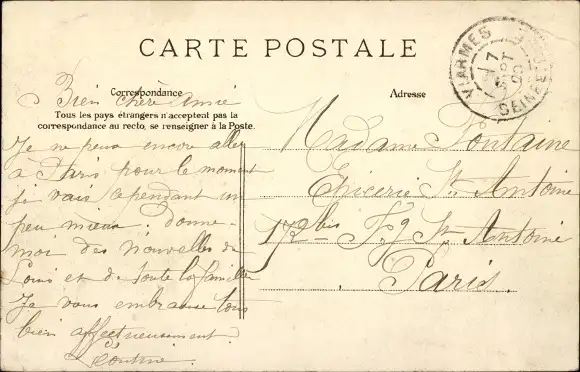 CARTE POSTALE
Correspondance
Tous les pays étrangers n'acceptent pas la
correspondance au recto, se renseigner à la Poste.
Bien chère amie
Je ne peux encore aller
à Paris pour le moment
je vais cependant un
peu mieux. donne-
moi des nouvelles de
Louis et de toute la famille
Je vous embrasse tous
bien affectueusement.
Adresse
Madame Fontaine
Epicerie St Antoine
172 bis Fg St Antoine
Paris.
VIARMES
7
SEPT
SEINE